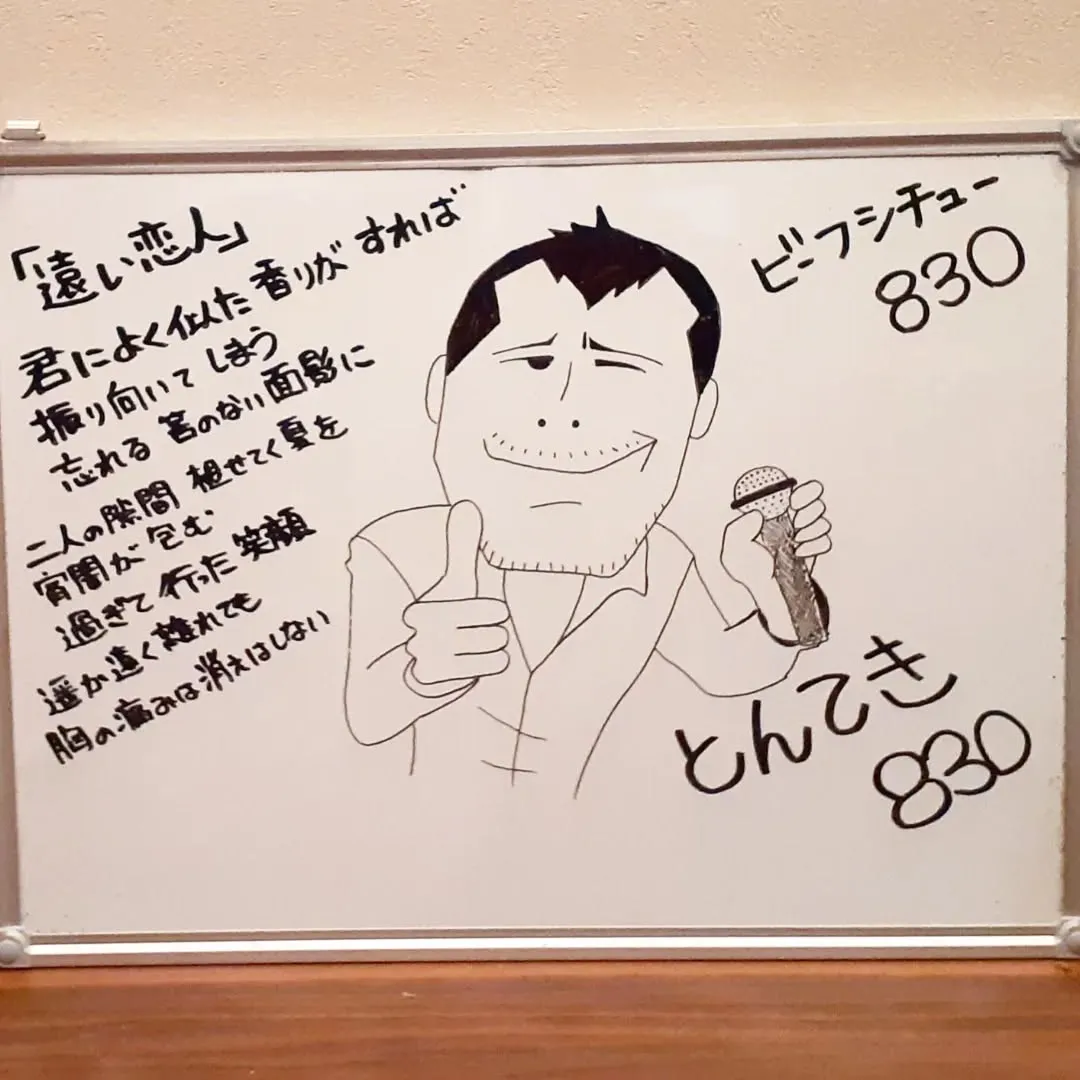 「遠い恋人」
君によく似た香りがすれば
振り向いてしまう
忘れる筈のない面影に
二人の隙間 褪せてく夏を
宵闇が包む
過ぎて行った笑顔
遥か遠く離れても
胸の痛みは消えはしない
ビーフシチュー
830
とんてき
830